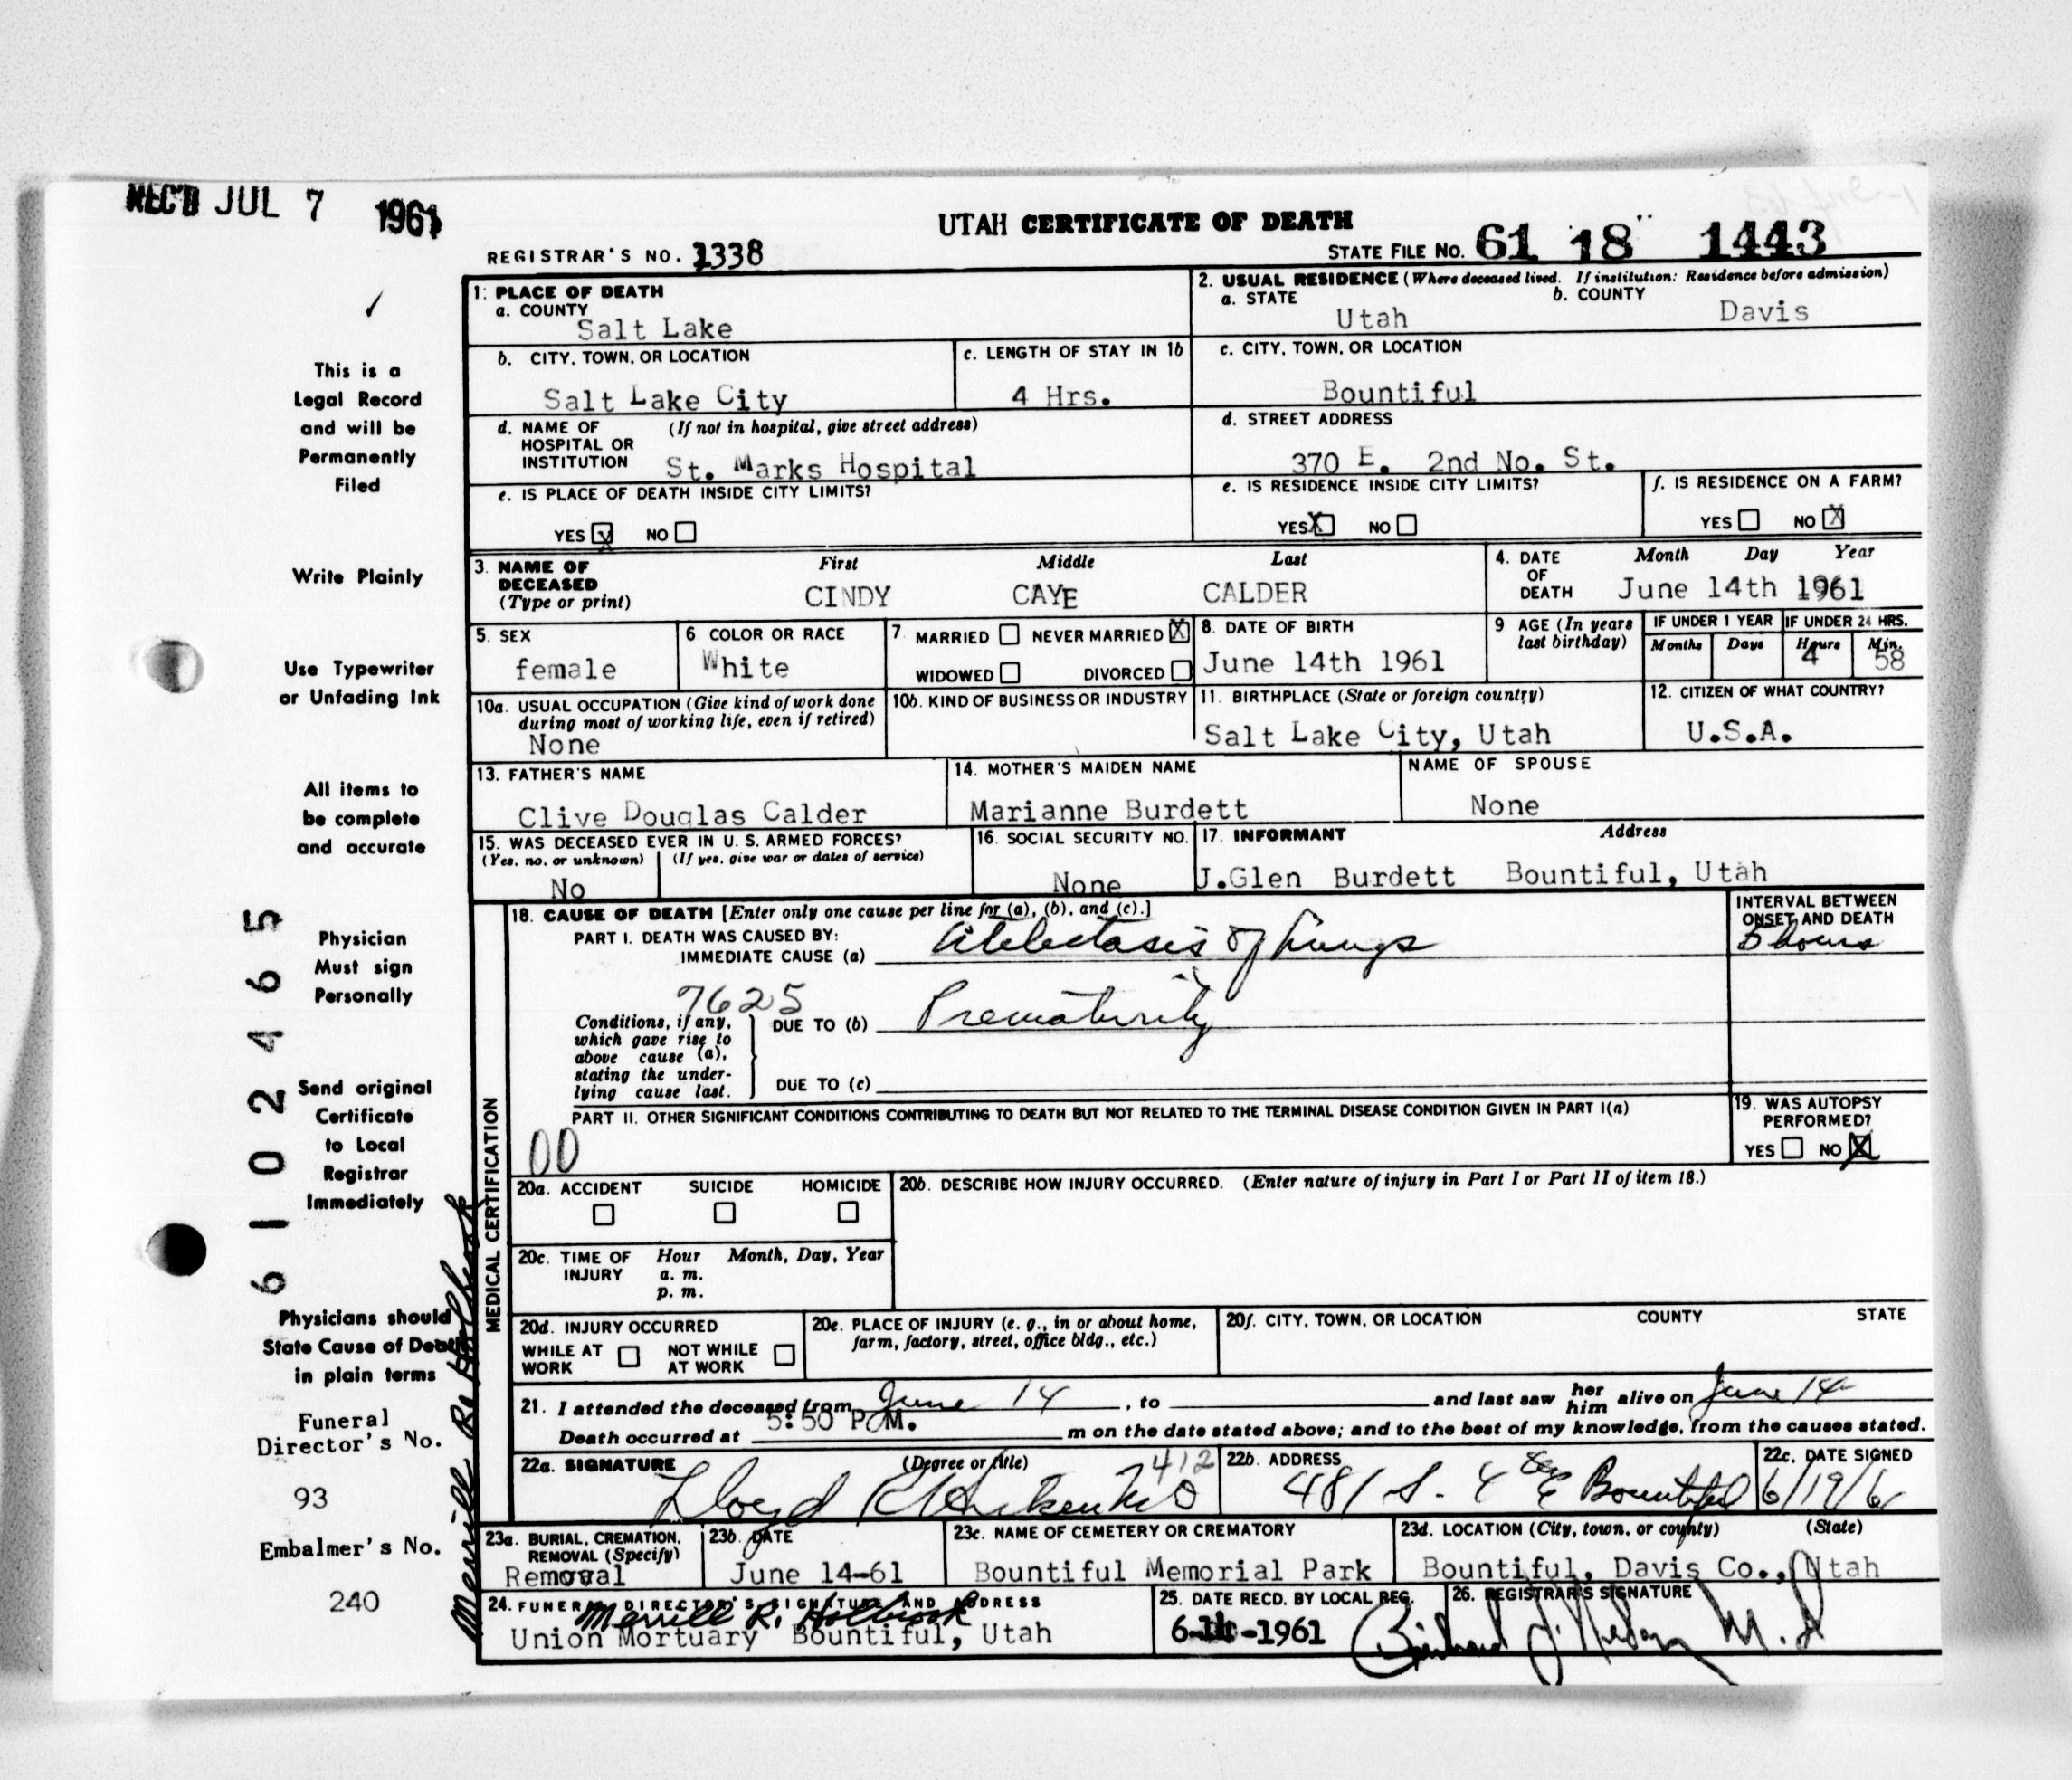 REC'D JUL 7 1961
UTAH CERTIFICATE OF DEATH
REGISTRAR'S NO. 1338
STATE FILE NO. 61 18 1443
1. PLACE OF DEATH
a. COUNTY
Salt Lake
2. USUAL RESIDENCE (Where deceased lived. If institution: Residence before admission)
a. STATE b. COUNTY
Utah Davis
b. CITY, TOWN, OR LOCATION
Salt Lake City
c. LENGTH OF STAY IN 1b
4 Hrs.
c. CITY, TOWN, OR LOCATION
Bountiful
d. NAME OF (If not in hospital, give street address)
HOSPITAL OR
INSTITUTION St. Marks Hospital
d. STREET ADDRESS
370 E. 2nd No. St.
e. IS PLACE OF DEATH INSIDE CITY LIMITS?
YES X NO
e. IS RESIDENCE INSIDE CITY LIMITS?
YES X NO
f. IS RESIDENCE ON A FARM?
YES NO X
3. NAME OF DECEASED (Type or print)
First Middle Last
CINDY CAYE CALDER
4. DATE OF DEATH
Month Day Year
June 14th 1961
5. SEX
female
6. COLOR OR RACE
White
7. MARRIED NEVER MARRIED X
WIDOWED DIVORCED
8. DATE OF BIRTH
June 14th 1961
9 AGE (In years last birthday)
IF UNDER 1 YEAR IF UNDER 24 HRS.
Months Days Hours Min.
4 58
10a. USUAL OCCUPATION (Give kind of work done
during most of working life, even if retired)
None
10b. KIND OF BUSINESS OR INDUSTRY
11. BIRTHPLACE (State or foreign country)
Salt Lake City, Utah
12. CITIZEN OF WHAT COUNTRY?
U.S.A.
13. FATHER'S NAME
Clive Douglas Calder
14. MOTHER'S MAIDEN NAME
Marianne Burdett
NAME OF SPOUSE
None
15. WAS DECEASED EVER IN U. S. ARMED FORCES?
(Yes, no, or unknown) (If yes, give war or dates of service)
No
16. SOCIAL SECURITY NO.
None
17. INFORMANT Address
J.Glen Burdett Bountiful, Utah
MEDICAL CERTIFICATION
18. CAUSE OF DEATH [Enter only one cause per line for (a), (b), and (c).]
PART I. DEATH WAS CAUSED BY:
IMMEDIATE CAUSE (a) Atelectasis of Lungs
INTERVAL BETWEEN
ONSET AND DEATH
5 hours
7625
Conditions, if any,
which gave rise to
above cause (a),
stating the under-
lying cause last.
DUE TO (b) Prematurity
DUE TO (c)
PART II. OTHER SIGNIFICANT CONDITIONS CONTRIBUTING TO DEATH BUT NOT RELATED TO THE TERMINAL DISEASE CONDITION GIVEN IN PART I(a)
00
19. WAS AUTOPSY
PERFORMED?
YES NO X
20a. ACCIDENT SUICIDE HOMICIDE
20b. DESCRIBE HOW INJURY OCCURRED. (Enter nature of injury in Part I or Part II of item 18.)
20c. TIME OF INJURY
Hour Month, Day, Year
a. m.
p. m.
20d. INJURY OCCURRED
WHILE AT WORK NOT WHILE AT WORK
20e. PLACE OF INJURY (e. g., in or about home,
farm, factory, street, office bldg., etc.)
20f. CITY, TOWN, OR LOCATION COUNTY STATE
21. I attended the deceased from June 14, to and last saw her him alive on June 14
Death occurred at 5:50 P.M. m on the date stated above; and to the best of my knowledge, from the causes stated.
22a. SIGNATURE (Degree or title)
412
22b. ADDRESS
481 S. 4 E Bountiful
22c. DATE SIGNED
6/19/61
23a. BURIAL, CREMATION,
REMOVAL (Specify)
Removal
23b. DATE
June 14-61
23c. NAME OF CEMETERY OR CREMATORY
Bountiful Memorial Park
23d. LOCATION (City, town, or county) (State)
Bountiful, Davis Co., Utah
24. FUNERAL DIRECTOR'S SIGNATURE AND ADDRESS
Merrill R. Holbrook
Union Mortuary Bountiful, Utah
25. DATE RECD. BY LOCAL REG.
26. REGISTRAR'S SIGNATURE
This is a
Legal Record
and will be
Permanently
Filed
Write Plainly
Use Typewriter
or Unfading Ink
All items to
be complete
and accurate
Physician
Must sign
Personally
Send original
Certificate
to Local
Registrar
Immediately
Physicians should
State Cause of Death
in plain terms
Funeral
Director's No.
93
Embalmer's No.
240
6102465
Merrill R. Holbrook